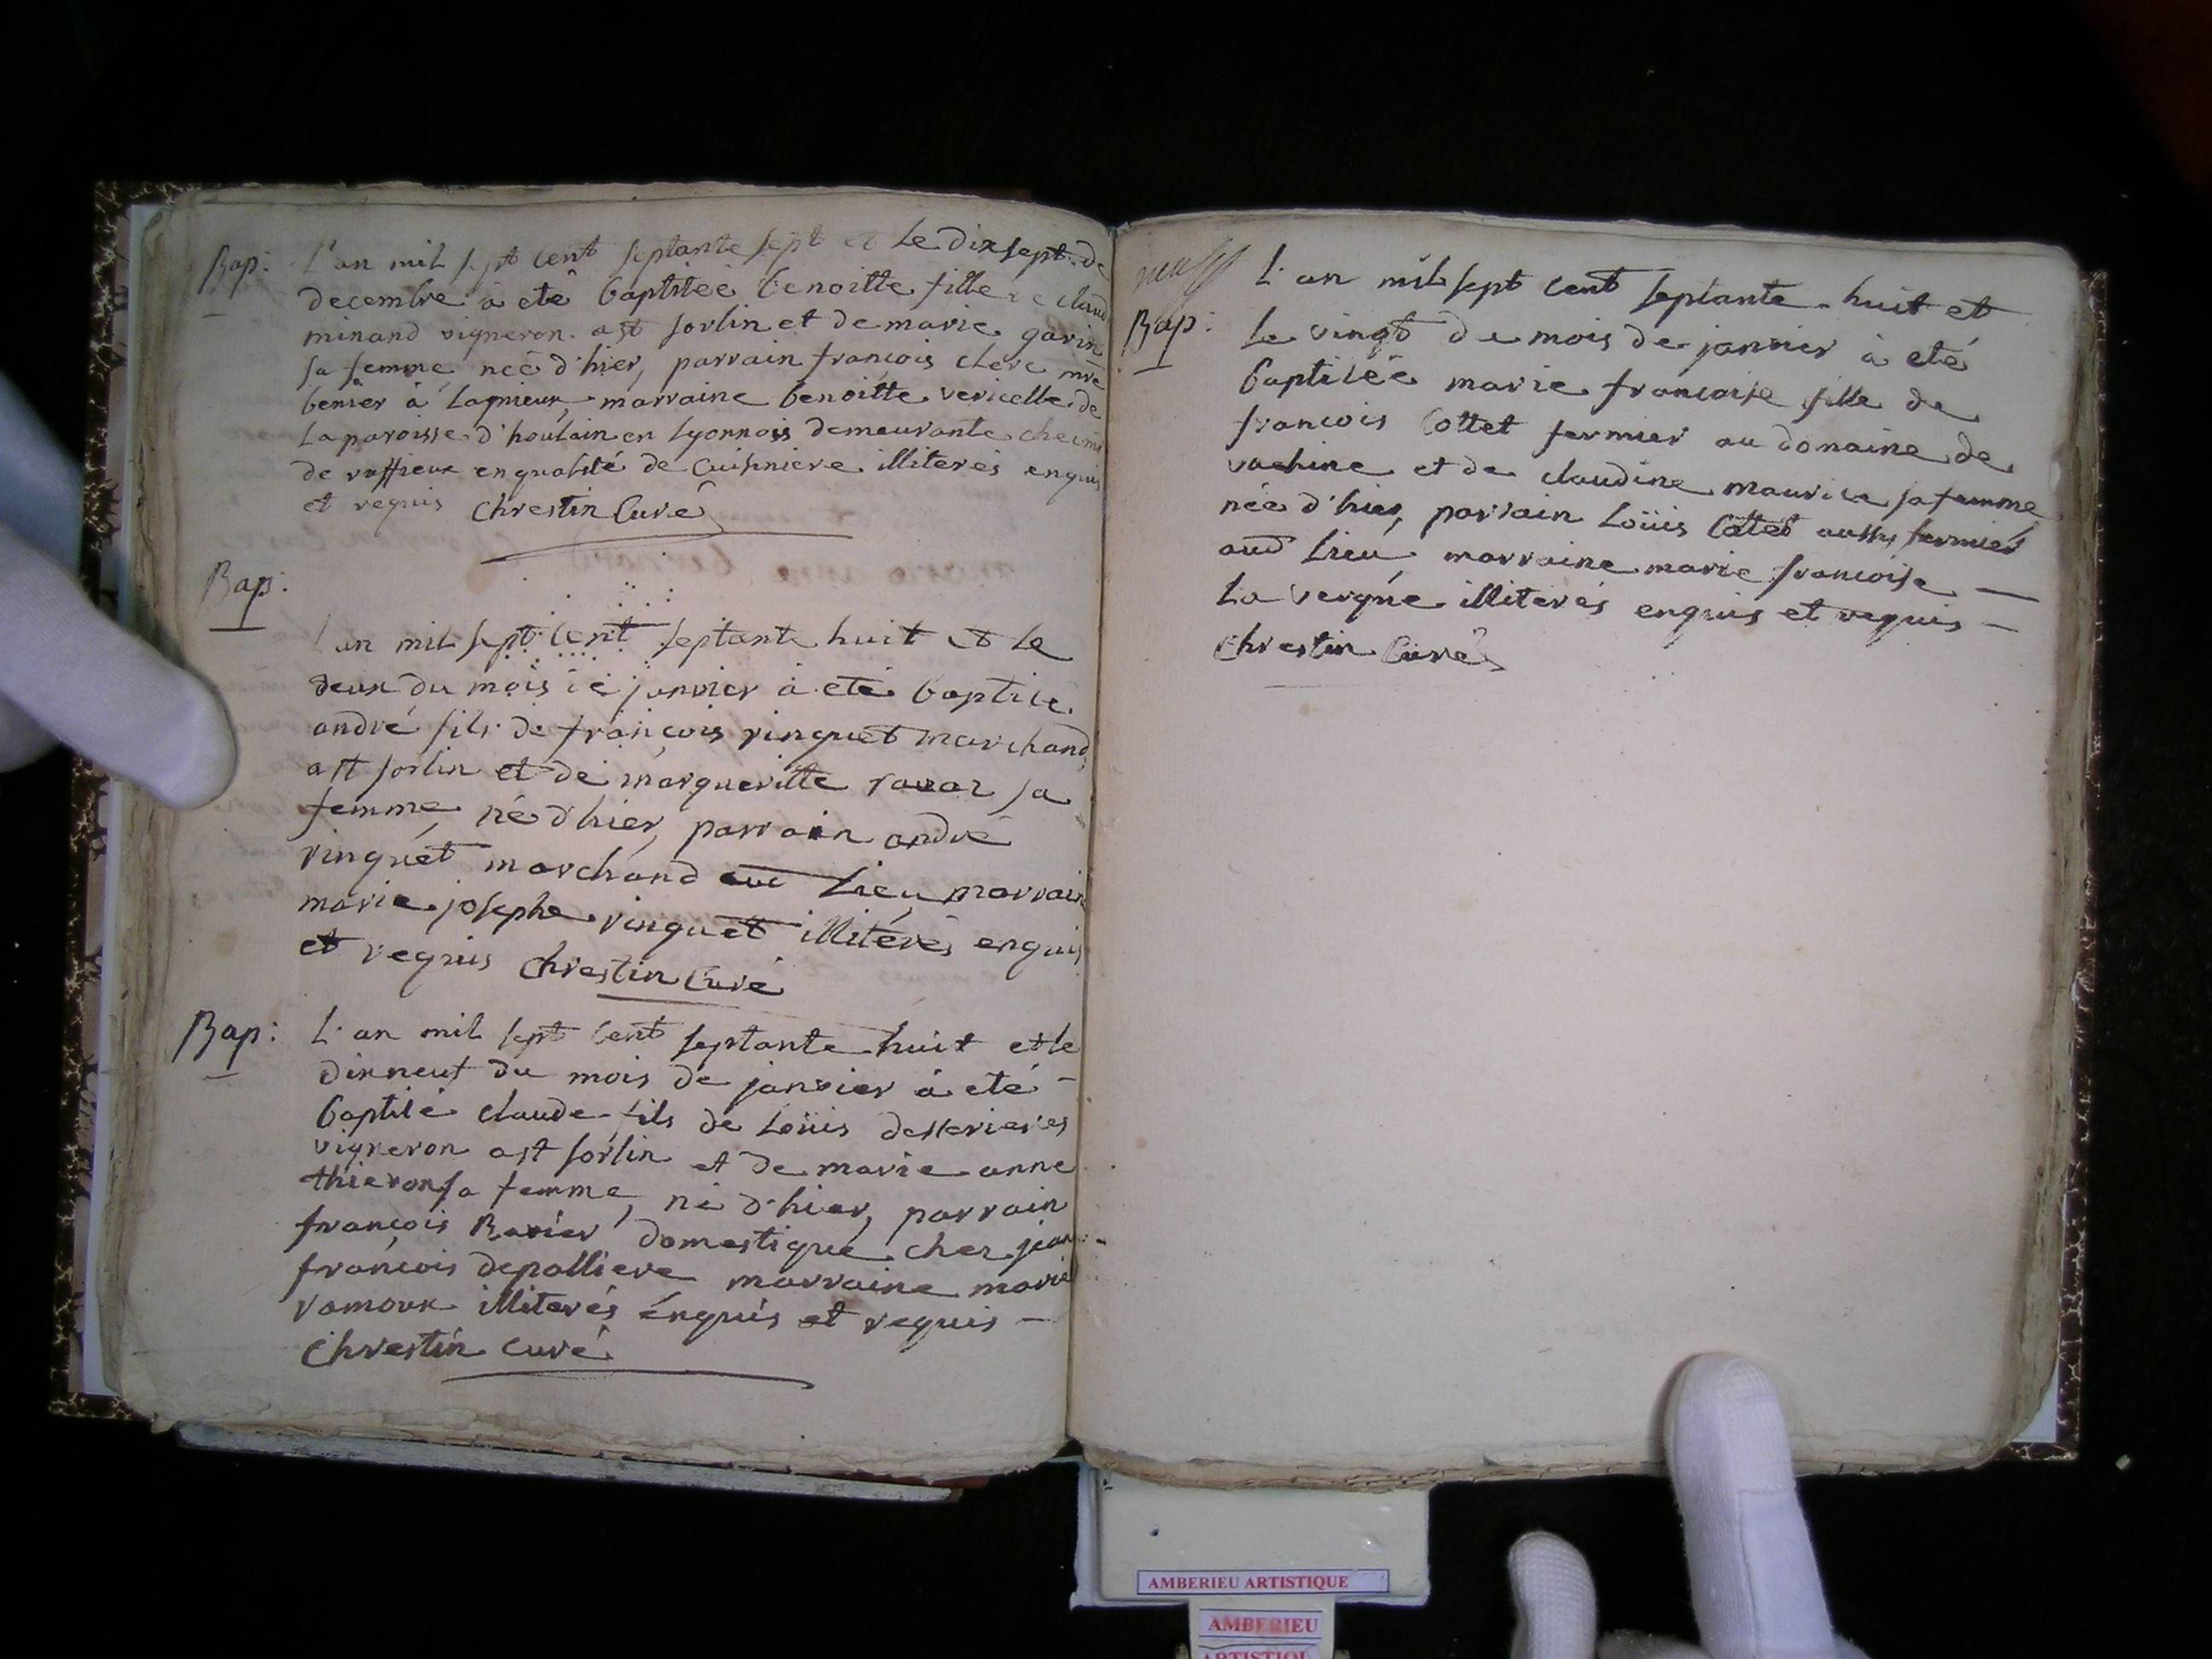 Bap: L'an mil sept cent septante sept et le dix sept de
decembre à eté baptiseé benoitte fille de claud
minand vigneron a st sorlin et de marie garin
sa femme neé d'hier, parrain françois clerc mre
à Lagnieux, marraine benoitte vericelle de
La paroisse d'houlain en Lyonnois demeurante
de ruffieux en qualité de cuisiniere illiterés enquis
et requis Chrestin Curé
Bap:
L'an mil sept cent septante huit et le
deux du mois de janvier à eté baptisé
andré fils de françois ringuet marchand
a st sorlin et de margueritte ravaz sa
femme, né d'hier, parrain andré
ringuet marchand aud Lieu, marrain
marie josephe ringuet illitérés enquis
et requis Chrestin Curé
Bap: L'an mil sept cent septante huit et le
dixneuf du mois de janvier à eté -
baptisé claude fils de Loüis desserieres
vigneron a st sorlin et de marie anne
thieron sa femme, né d'hier, parrain
françois Ravier domestique chez jean
françois depalliere marraine marie
ramoux illiterés énquis et requis -
Chrestin curé
Bap: L'an mil sept cent septante huit et
Le vingt de mois de janvier à eté
baptiséé marie francoise fille de
francois Cottet fermier au domaine de
vachine et de claudine maurice sa femme
née d'hier, parrain Loüis Cottet aussy fermier
aud Lieu, marraine marie francoise —
La vergne illiterés enquis et requis —
Chrestin Curé
AMBERIEU ARTISTIQUE
AMBERIEU
ARTISTIQUE